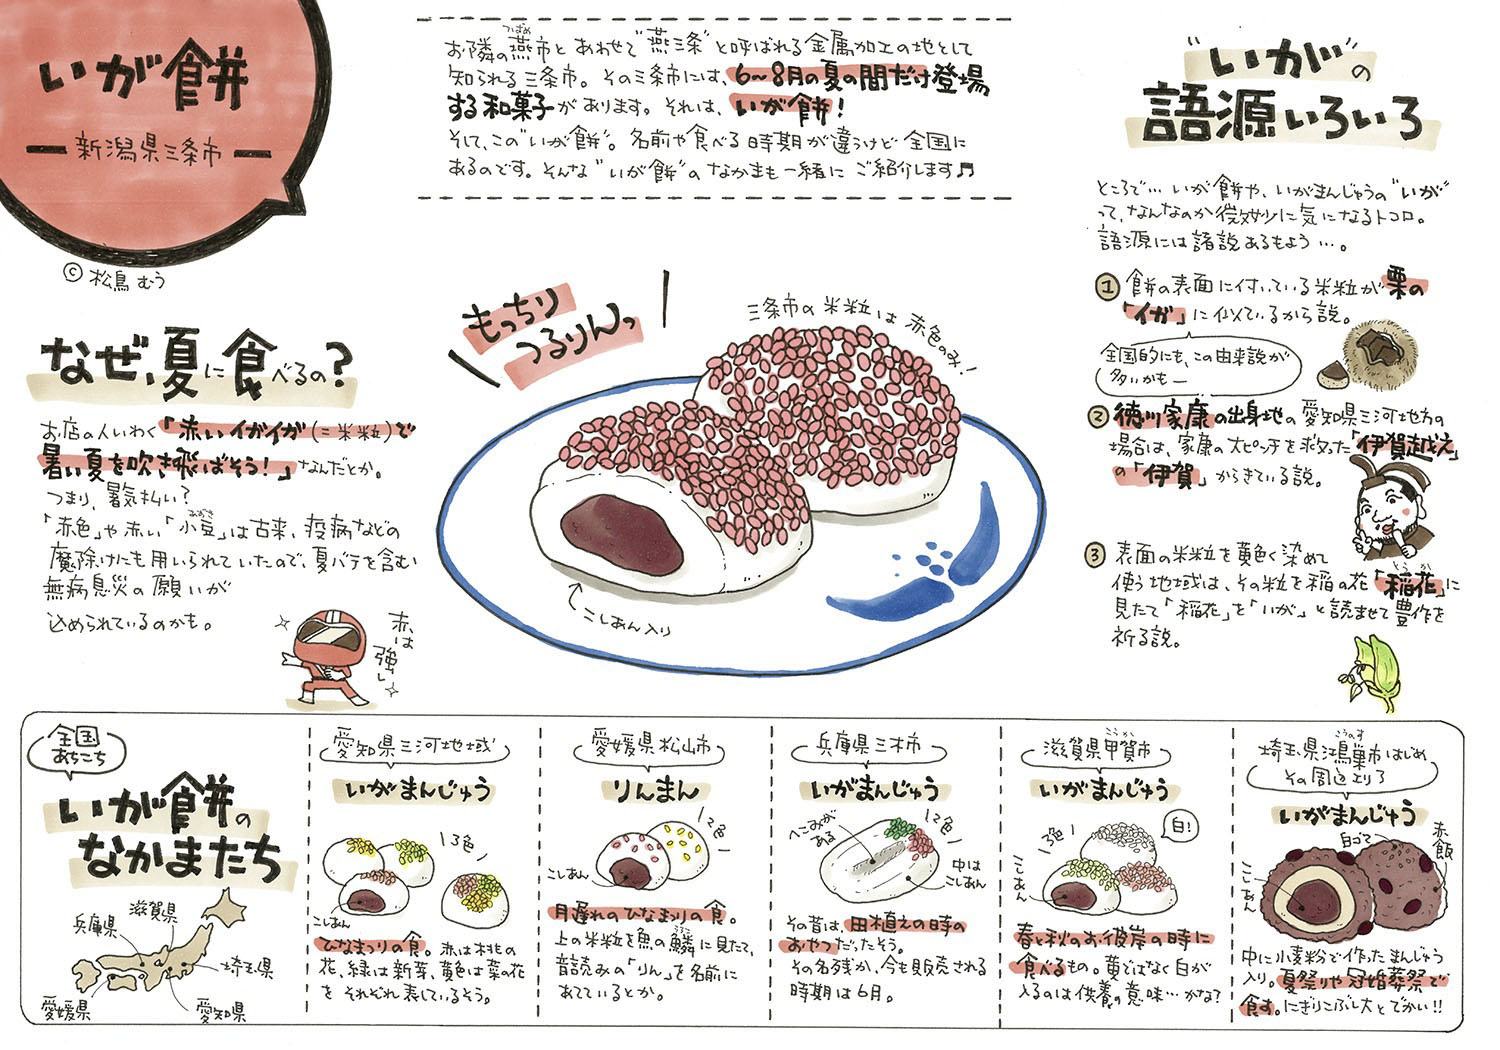 いが餅
新潟県三条市
©松鳥むう
お隣の燕市とあわせて"燕三条"と呼ばれる金属加工の地として
知られる三条市。その三条市には、6〜8月の夏の間だけ登場
する和菓子があります。それは、いが餅!
そして、この"いが餅"。名前や食べる時期が違うけど全国に
あるのです。そんな"いが餅"のなかまも一緒にご紹介します♫
なぜ、夏に食べるの?
お店の人いわく「赤いイガイガ(=米粒)で
暑い夏を吹き飛ばそう!」なんだとか。
つまり、暑気払い?
「赤色」や赤い「小豆」は古来、疫病などの
魔除けにも用いられていたので、夏バテを含む
無病息災の願いが
込められているのかも。
赤は
強い
もっちり
つるりんっ
三条市の米粒は赤色のみ!
こしあん入り
"いが"の
語源いろいろ
ところで…いが餅や、いがまんじゅうの"いが"
って、なんなのか微妙に気になるトコロ。
語源には諸説あるもよう…。
① 餅の表面に付いている米粒が栗の
「イガ」に似ているから説。
全国的にも、この由来説が
多いかもー
② 徳川家康の出身地の愛知県三河地方の
場合は、家康の大ピンチを救った「伊賀越え」
の「伊賀」からきている説。
③ 表面の米粒を黄色く染めて
使う地域は、その粒を稲の花「稲花」に
見たて「稲花」を「いが」と読ませて豊作を
祈る説。
全国
あちこち
いが餅の
なかまたち
兵庫県
滋賀県
埼玉県
愛媛県
愛知県
愛知県三河地域
いがまんじゅう
3色
こしあん
ひなまつりの食。赤は桃の
花、緑は新芽、黄色は菜の花
をそれぞれ表しているそう。
愛媛県松山市
りんまん
2色
こしあん
月遅れのひなまつりの食。
上の米粒を魚の鱗に見たて、
音読みの「りん」を名前に
あてているとか。
兵庫県三木市
いがまんじゅう
へこみが
ある
2色
中は
こしあん
その昔は、田植えの時の
おやつだったそう。
その名残か、今も販売される
時期は6月。
滋賀県甲賀市
いがまんじゅう
3色
白!
こしあん
春と秋のお彼岸の時に
食べるもの。黄ではなく白が
入るのは供養の意味…かな?
埼玉県鴻巣市はじめ
その周辺エリア
いがまんじゅう
白ゴマ
赤飯
こしあん
中に小麦粉で作ったまんじゅう
入り。夏祭りや冠婚葬祭で
食す。にぎりこぶし大とでかい!!